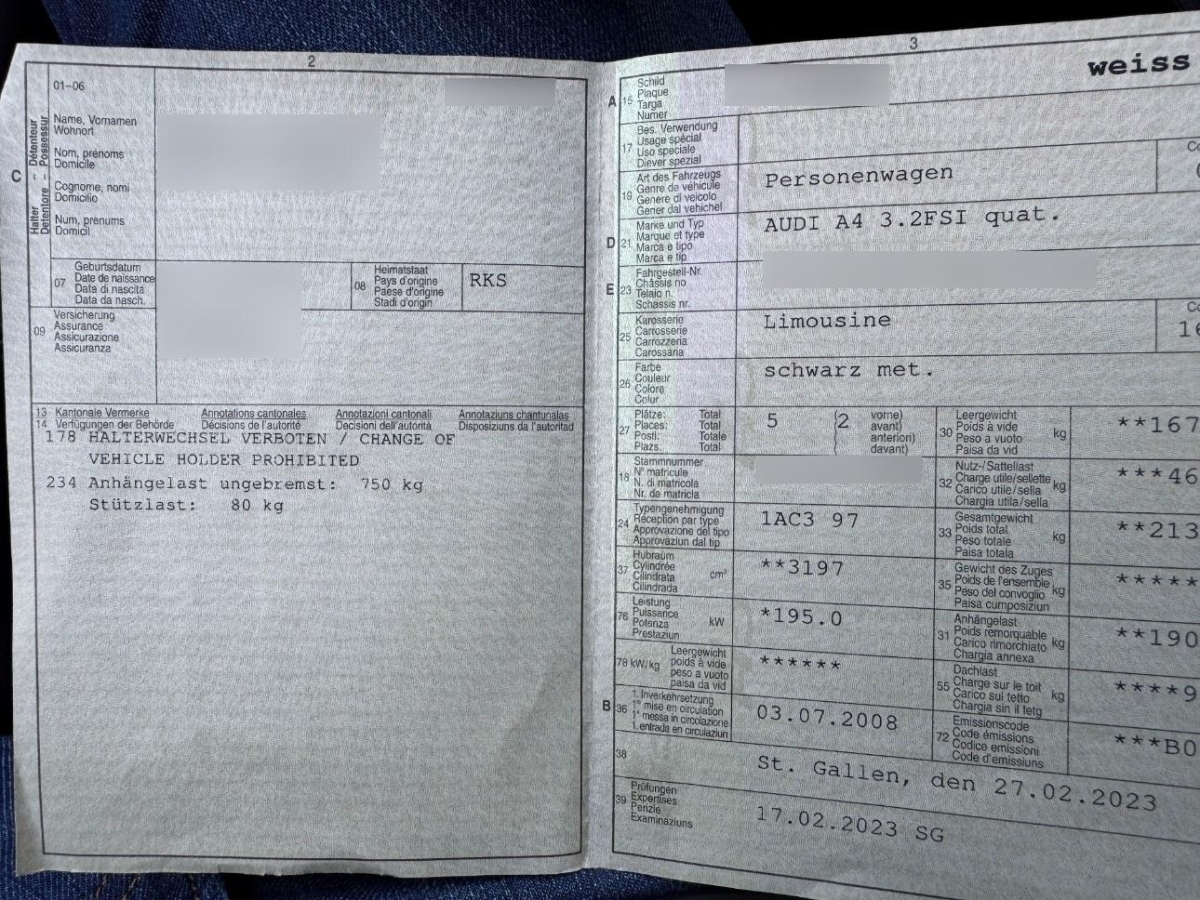 2
01-06
C
Halter - Détenteur
Detentore - Possessur
Name, Vornamen
Wohnort
Nom, prénoms
Domicile
Cognome, nomi
Domicilio
Num, prenums
Domicil
07
Geburtsdatum
Date de naissance
Data di nascita
Data da nasch.
08
Heimatstaat
Pays d'origine
Paese d'origine
Stadi d'origin
RKS
09
Versicherung
Assurance
Assicurazione
Assicuranza
13 Kantonale Vermerke Annotations cantonales Annotazioni cantonali Annotaziuns chantunalas
14 Verfügungen der Behörde Décisions de l'autorité Decisioni dell'autorità Disposiziuns da l'autoritad
178 HALTERWECHSEL VERBOTEN / CHANGE OF
VEHICLE HOLDER PROHIBITED
234 Anhängelast ungebremst: 750 kg
Stützlast: 80 kg
3
weiss
A 15
Schild
Plaque
Targa
Numer
17
Bes. Verwendung
Usage spécial
Uso speciale
Diever spezial
19
Art des Fahrzeugs
Genre de véhicule
Genere di veicolo
Gener dal vehichel
Personenwagen
D 21
Marke und Typ
Marque et type
Marca e tipo
Marca e tip
AUDI A4 3.2FSI quat.
E 23
Fahrgestell-Nr.
Châssis no
Telaio n.
Schassis nr.
25
Karosserie
Carrosserie
Carrozzeria
Carossaria
Limousine
26
Farbe
Couleur
Colore
Colur
schwarz met.
27
Plätze: Total
Places: Total
Posti: Totale
Plazs. Total
5
(2
vorne)
avant)
anteriori)
davant)
30
Leergewicht
Poids à vide
Peso a vuoto
Paisa da vid
kg
**167
18
Stammnummer
N° matricule
N. di matricola
Nr. da matricla
32
Nutz-/Sattellast
Charge utile/sellette
Carico utile/sella
Chargia utila/sella
kg
***46
24
Typengenehmigung
Réception par type
Approvazione del tipo
Approvaziun dal tip
1AC3 97
33
Gesamtgewicht
Poids total
Peso totale
Paisa totala
kg
**213
37
Hubraum
Cylindrée
Cilindrata
Cilindrada
cm³
**3197
35
Gewicht des Zuges
Poids de l'ensemble
Peso del convoglio
Paisa cumposiziun
kg
*****
76
Leistung
Puissance
Potenza
Prestaziun
kW
*195.0
31
Anhängelast
Poids remorquable
Carico rimorchiato
Chargia annexa
kg
**190
78 kW/kg
Leergewicht
poids à vide
peso a vuoto
paisa da vid
******
55
Dachlast
Charge sur le toit
Carico sul tetto
Chargia sin il tetg
kg
****9
B 36
1. Inverkehrsetzung
1re mise en circulation
1a messa in circolazione
1. entrada en circulaziun
03.07.2008
72
Emissionscode
Code émissions
Codice emissioni
Code d'emissiuns
***B0
38
St. Gallen, den 27.02.2023
39
Prüfungen
Expertises
Perizie
Examinaziuns
17.02.2023 SG